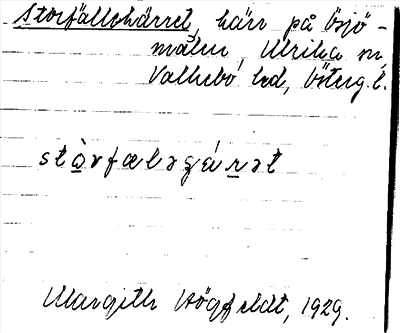 Storfällehärret, härr på Örsjö-
målen, Ulrika sn,
Valkebo hd, Österg. l.
stòrfæləgáret
Margith Högfeldt, 1929.